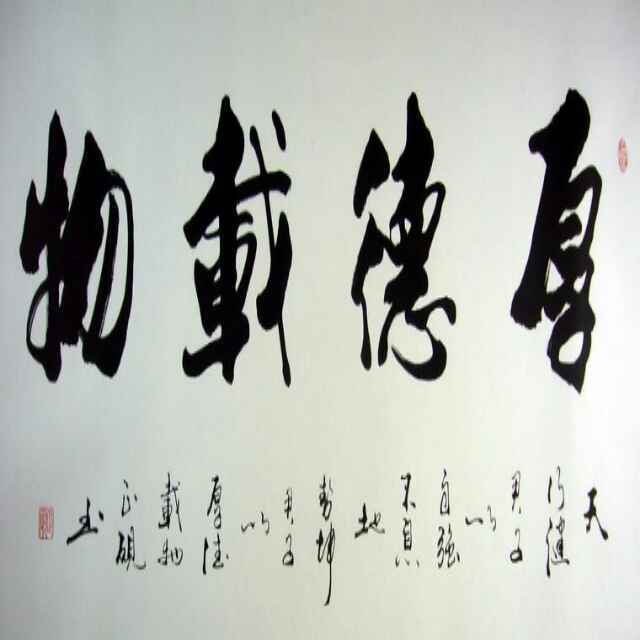 厚德載物
天
行健
君子
以
自強
不息
地
勢坤
君子
以
厚德
載物
正硯
书